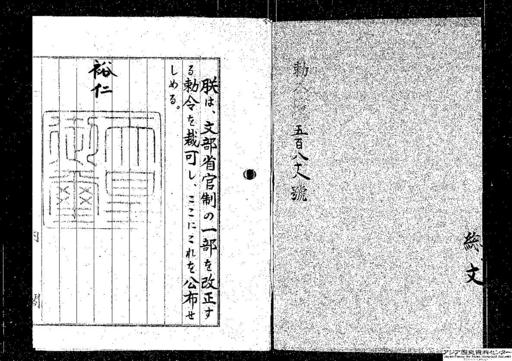 勅令第五百八號
総、文
朕は、文部省官制の一部を改正す
る勅令を裁可し、ここにこれを公布せ
しめる。
裕仁
天皇御璽
内閣
アジア歴史資料センター